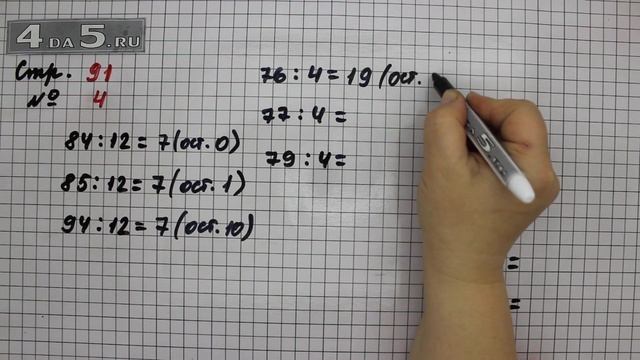 4DA5.RU
Стр. 91
№ 4
84 : 12 = 7 (ост. 0)
85 : 12 = 7 (ост. 1)
94 : 12 = 7 (ост. 10)
76 : 4 = 19 (ост.
77 : 4 =
79 : 4 =
=
=